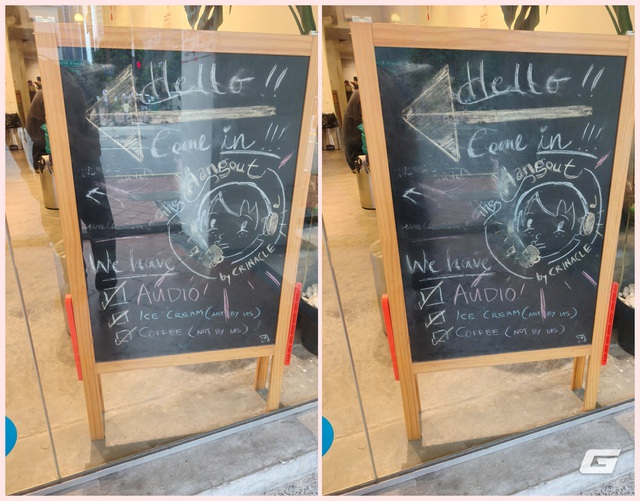 Hello!!
Come in!!!
this hangout
by CRINACLE
We have
AUDIO!
ICE CREAM (NOT BY US)
COFFEE (NOT BY US)
Hello!!
Come in!!!
this hangout
by CRINACLE
We have
AUDIO!
ICE CREAM (NOT BY US)
COFFEE (NOT BY US)
G